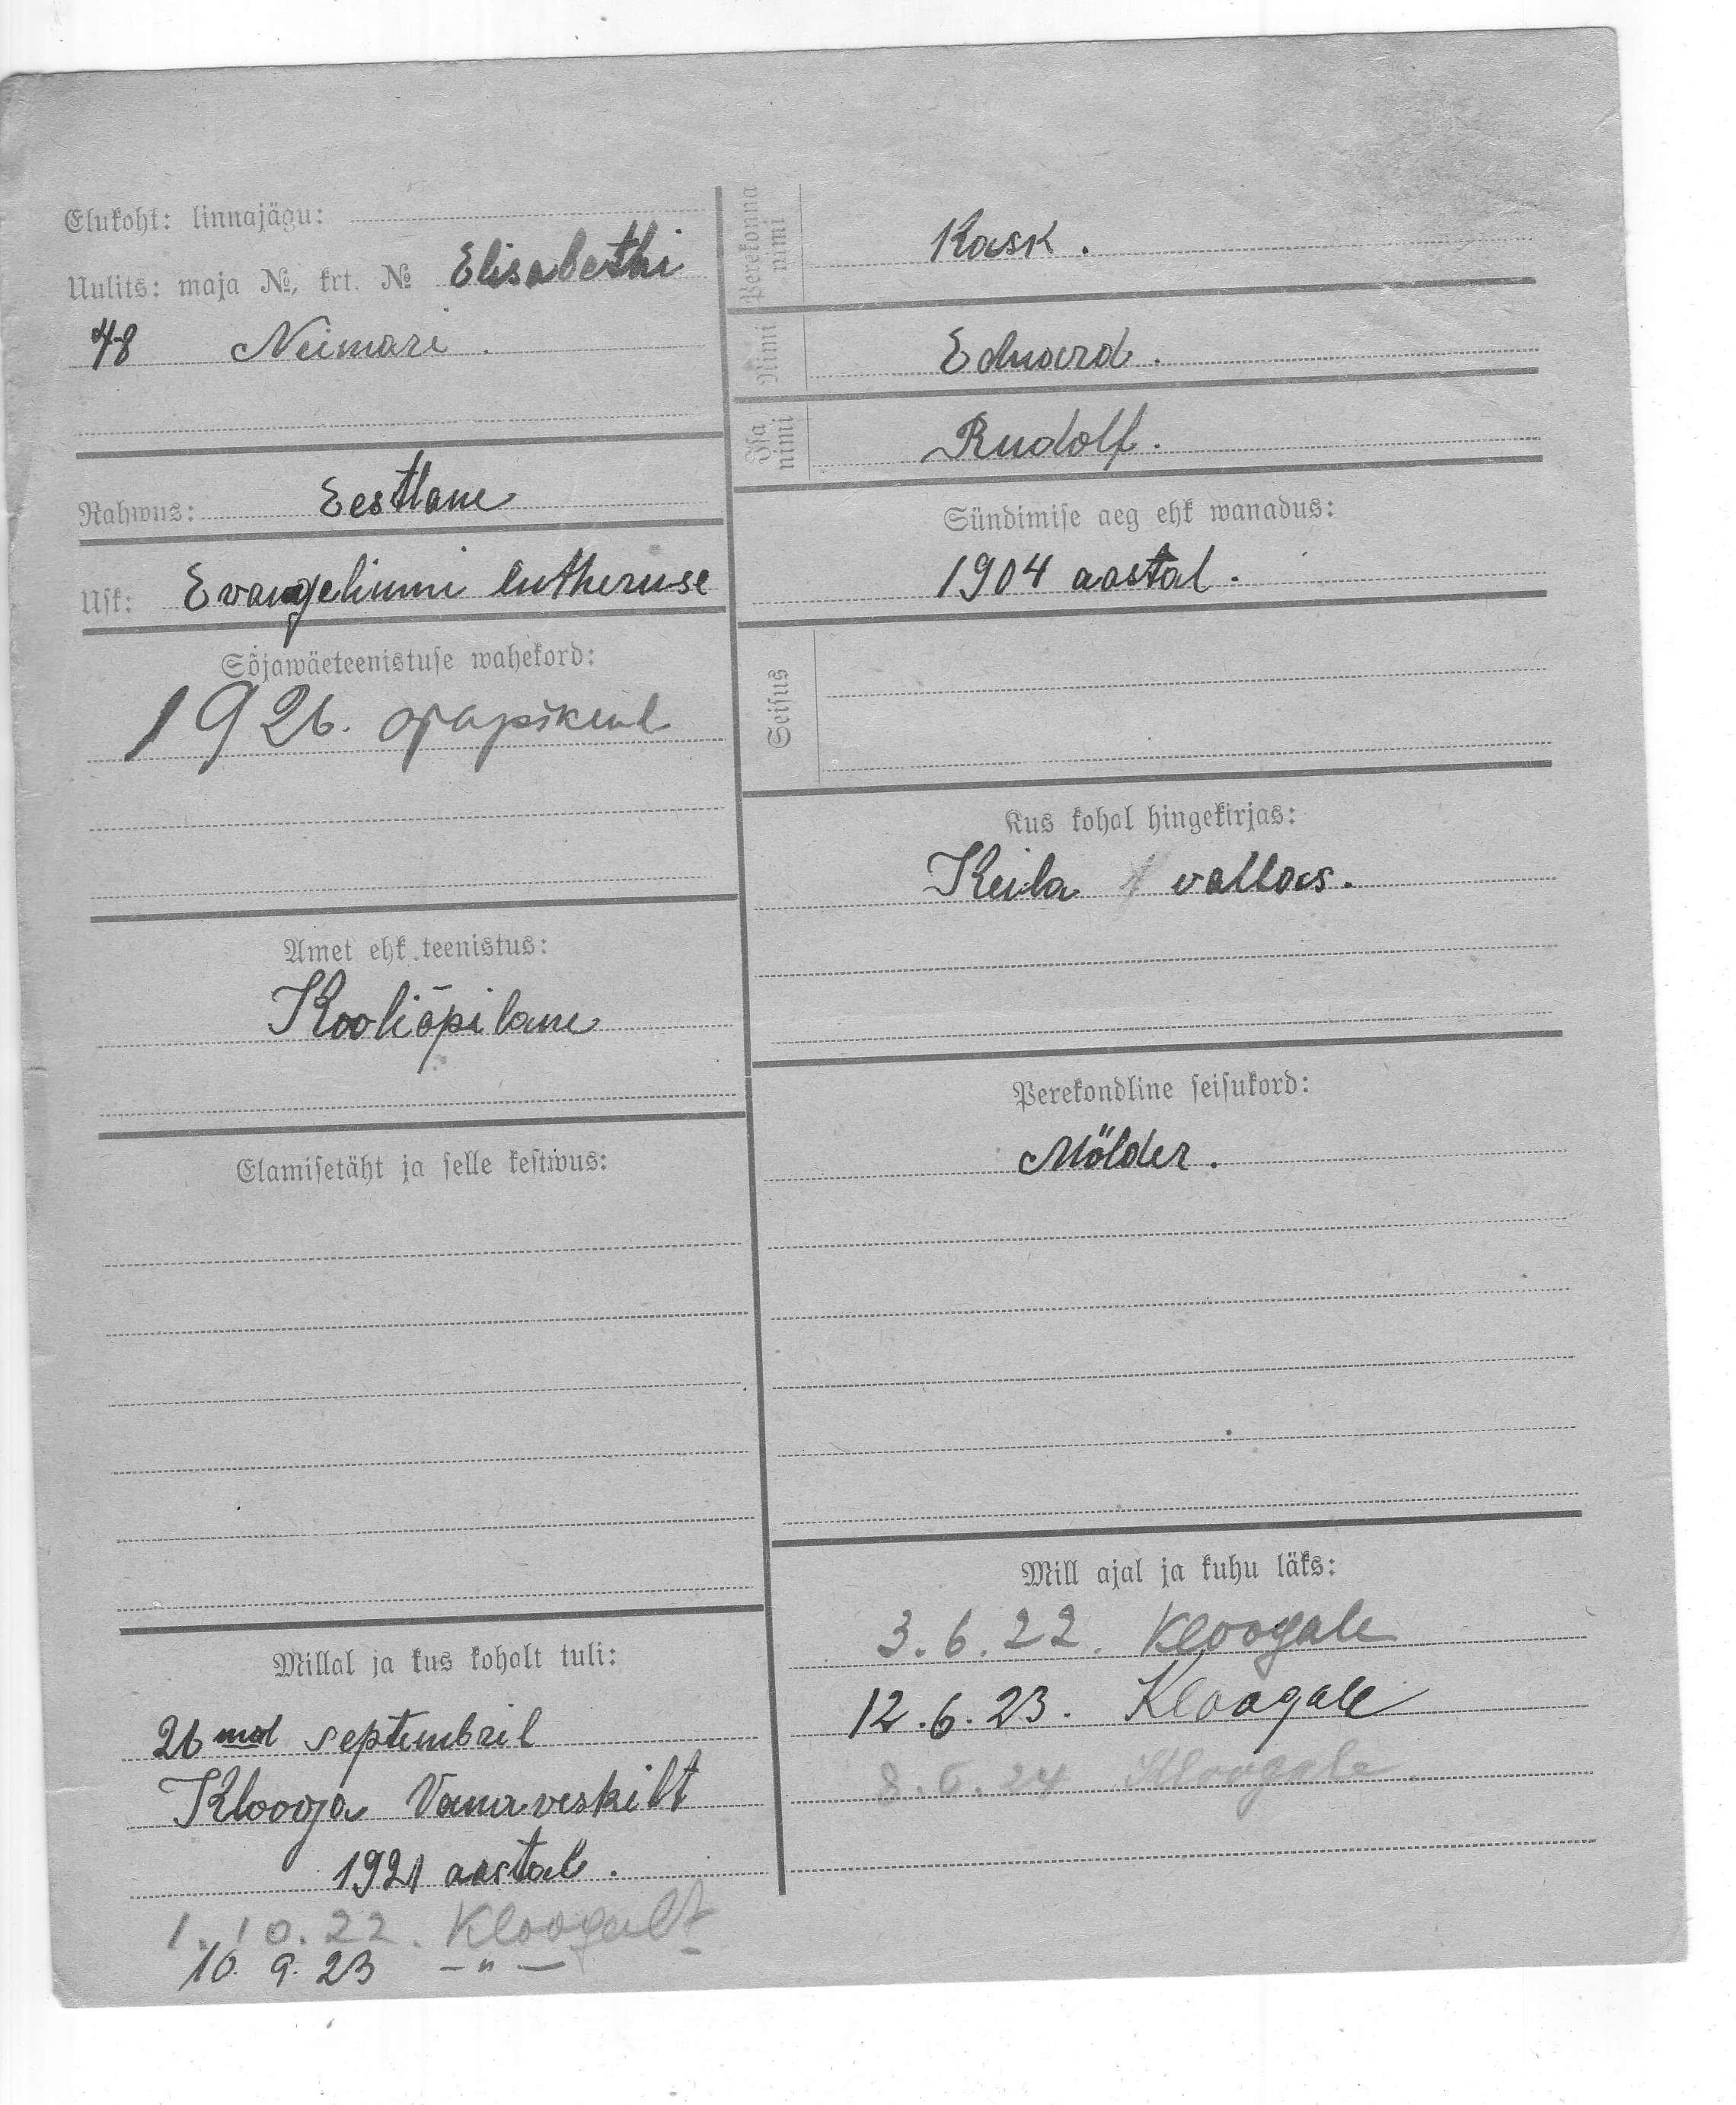 Elukoht: linnajägu:
Uulits: maja №, krt. № Elisabethi
48 Neimari.
Rahwus: Eestlane
Usk: Evangeliumi lutheruse
Sõjawäeteenistuse wahekord:
1926.
Amet ehk teenistus:
Kooliõpilane
Elamisetäht ja selle kestwus:
Millal ja kus kohalt tuli:
26 mal septembril
Klooga Vanaveskilt
1921 aastal.
1.10.22. Kloogalt
10. 9. 23 —„—
Perekonna nimi
Kask.
Nimi
Eduard.
Isa nimi
Rudolf.
Sündimise aeg ehk wanadus:
1904 aastal.
Seisus
Kus kohal hingekirjas:
Keila vallas.
Perekondline seisukord:
Mölder.
Mill ajal ja kuhu läks:
3.6.22. Kloogale
12.6.23. Kloogale
8.6.24 Kloogale